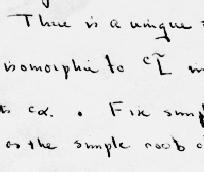 There is a unique
isomorphic to ᶜL̃
cα. . Fix simp
as the simple roots